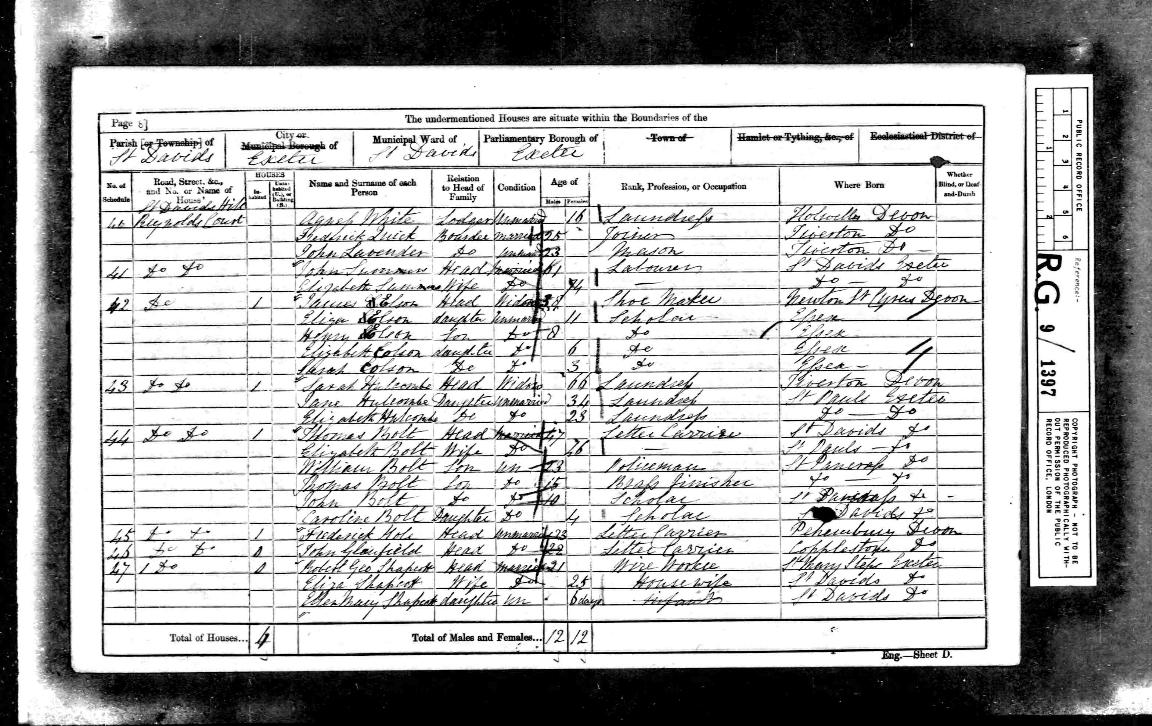 Page 8]
The undermentioned Houses are situate within the Boundaries of the
Parish [or Township] of
St Davids
City or Municipal Borough of
Exeter
Municipal Ward of
St Davids
Parliamentary Borough of
Exeter
Town of
Hamlet or Tything, &c., of
Ecclesiastical District of
No. of Schedule
Road, Street, &c., and No. or Name of House
HOUSES
Inhabited
Uninhabited (U.), or Building (B.)
Name and Surname of each Person
Relation to Head of Family
Condition
Age of
Males
Females
Rank, Profession, or Occupation
Where Born
Whether Blind, or Deaf-and-Dumb
St Davids Hill
40 Reynolds Court Agnes White Lodger Unmarried 16 Laundress Devon
Frederick Quick Boarder married 25 Joiner Tiverton Do
John Lavender Do unmar 23 Mason Tiverton Do
41 Do Do John Head married 61 Labourer St Davids Exeter
Elizabeth Wife Do 74 Do Do
42 Do 1 James Head Widow Shoe Maker Newton St Cyres Devon
Eliza daughter unmar 11 Scholar Essex
Henry Son Do 8 Do Essex
Elizabeth Colson daughter Do 6 Do Essex
Sarah Colson Do Do 3 Do Essex
43 Do Do 1 Sarah Hulcombe Head Widow 66 Laundress Tiverton Devon
Jane Hulcombe Daughter unmarried 34 Laundress St Pauls Exeter
Elizabeth Hulcombe Do Do 23 Laundress Do Do
44 Do Do 1 Thomas Bolt Head married 47 Letter Carrier St Davids Do
Elizabeth Bolt Wife Do St Pauls Do
William Bolt Son un 23 Policeman St Pancrass Do
Thomas Bolt Son Do 15 Brass finisher Do Do
John Bolt Do Do 10 Scholar St Pancrass Do
Caroline Bolt Daughter Do 4 Scholar St Davids Do
45 Do Do 1 Frederick Hole Head unmarried 23 Letter Carrier Devon
46 Do Do John Head Do 22 Letter Carrier Copplestone Do
47 Do Robert Geo Shapcott Head married 21 Wire Worker St Mary Steps Exeter
Eliza Shapcott Wife Do 25 Housewife St Davids Do
Ellen Mary Shapcott daughter un 6 days Infant St Davids Do
Total of Houses... 4
Total of Males and Females... 12 12
Eng.—Sheet D.
PUBLIC RECORD OFFICE
1 2 3 4 5 6
Reference:-
R.G. 9/1397
COPYRIGHT PHOTOGRAPH - NOT TO BE
REPRODUCED PHOTOGRAPHICALLY WITH-
OUT PERMISSION OF THE PUBLIC
RECORD OFFICE, LONDON